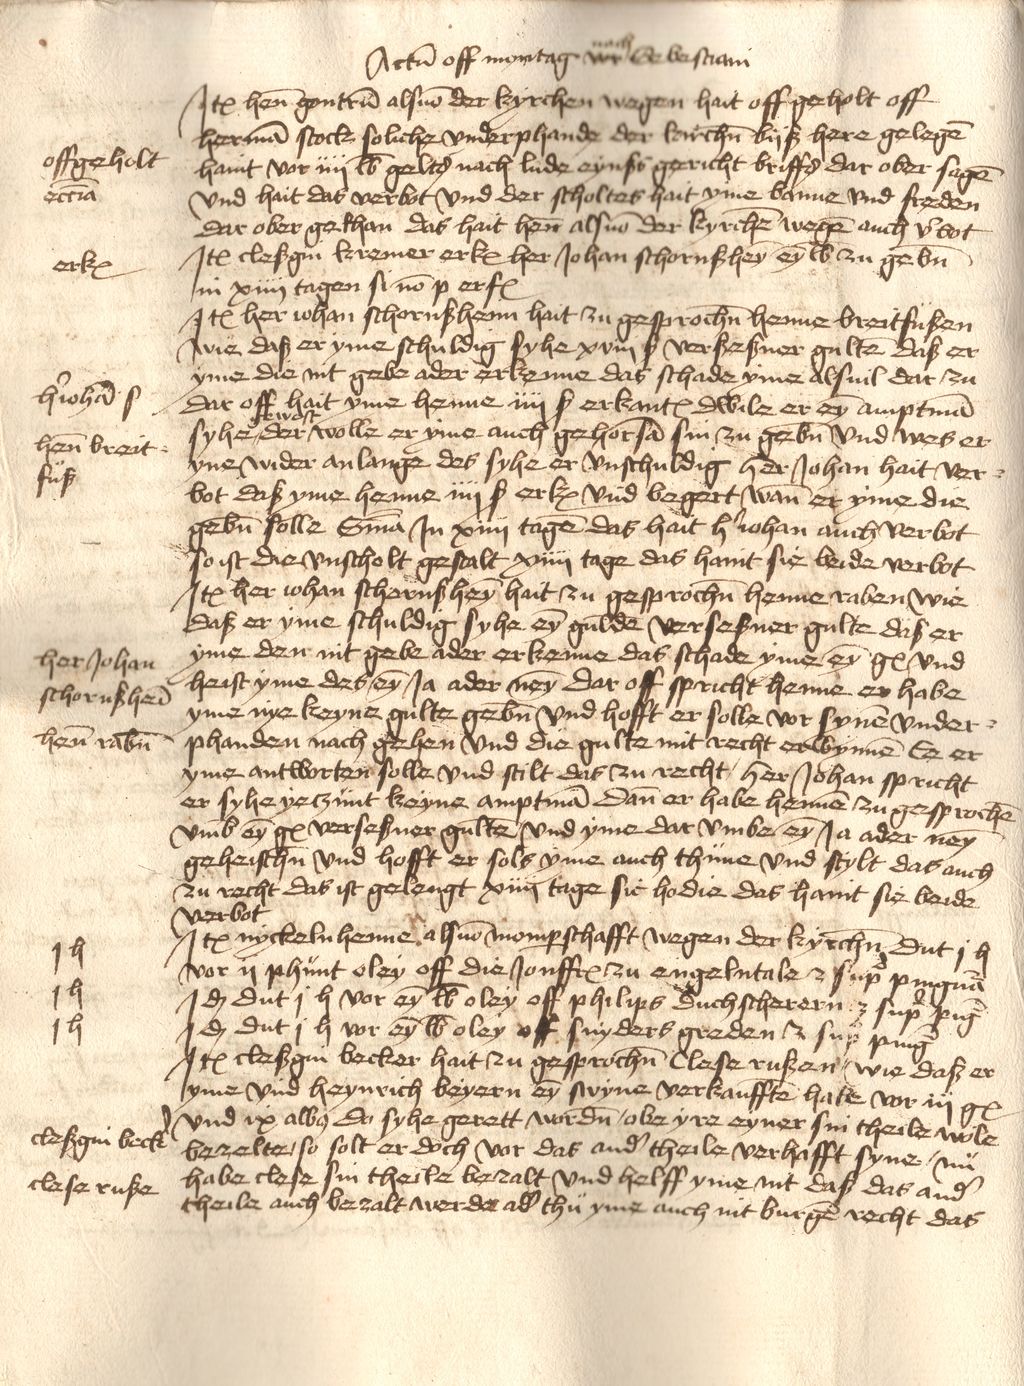 Actu off montag nach Sebestiani
Itẽ hen gontru als von der kyrchen wegen hait off geholt off
herman stock soliche underphande der kirchen biß here gelegen
offgeholt
eccia
haint vor iiii lb gelts nach lude eynß gericht briffs dar ober sagen
und hait das verbot und der scholtes hait yme banne und freden
dar ober gethan das hait hen als von der kyrchen wegen auch vbot
erk
Itẽ cleßgin kremer erk her Johan schornßhey ey lb zu gebn
in xiiii tagen si no p erf
Itẽ her johan schornßheim hait zu gesprochn henne breitfußen
wie daß er yme schuldig syhe xviii ß verseßner gulte daß er
yme die nit gebe ader erkenne das schade yme alsuil dar zu
h johan ß
dar off hait yme henne iiii ß erkant dwile er ey amptma
hen breit-
fuß
syhe gewest der wolle er yme auch gehorsa sin zu gebn und wes er
yne wider anlange des syhe er unschuldig her Johan hait ver-
bot daß yme henne iiii ß erk und begert wan er yme die
gebn solle Sma In xiiii tage das hait h johan auch verbot
so ist die unscholt gestalt xiiii tage das haint sie beide verbot
Itẽ her johan schornßhey hait zu gesprochn henne raben wie
daß er yme schuldig syhe ey gulde verseßner gulte daß er
her Johan
schornßhei
yme den nit gebe ader erkenne das schade yme ey g und
heist yme des ey Ja ader ney Dar off spricht henne er habe
yme nye keyne gulte gebn und hofft er solle vor syne under-
hen rabn
phanden nach gehen und die gulte mit recht erwynne Ee er
yme antworten solle und stilt das zu recht her Johan spricht
er syhe yeczunt keyne amptma Dan er habe henne zu gesproche
umb ey g verseßner gulte und yme dar umbe ey Ja ader ney
geheischn und hofft er sols yme auch thune und stylt das auch
zu recht das ist gelengt xiiii tage sic hodie das haint sie beide
verbot
Itẽ nyckeln henne als von momperschafft wegen der kyrchn Dut j h
j h
vor ii phunt oley off die Jonffr zu engelntale z sup pingua
j h
Id dut j h vor ey lb oley off philips duchscherern z sup ping
j h
Id dut j h vor ey lb oley off snyders greden z sup ping
Itẽ cleßgin becker hait zu gesprochn Clese rußen wie daß er
yme und heynrich beyern ey swyne verkauffte habe vor iii g
und ix albus do syhe gerett wordn obe yre eyner sin theile wole
cleßgin beck
bezelte so solt er doch vor das and theile verhafft syne nu
clese ruße
habe clese sin theile bezalt und helff yme nit daß das and
theile auch bezalt werde ad thu yme auch nit burge recht das